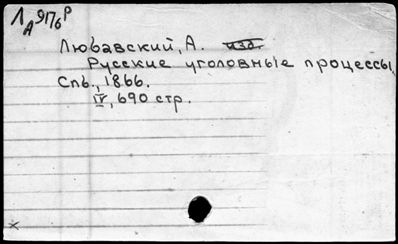 Л А 917б Р
Любавский, А. изд.
Русские уголовные процессы.
Спб., 1866.
IV, 690 стр.
x